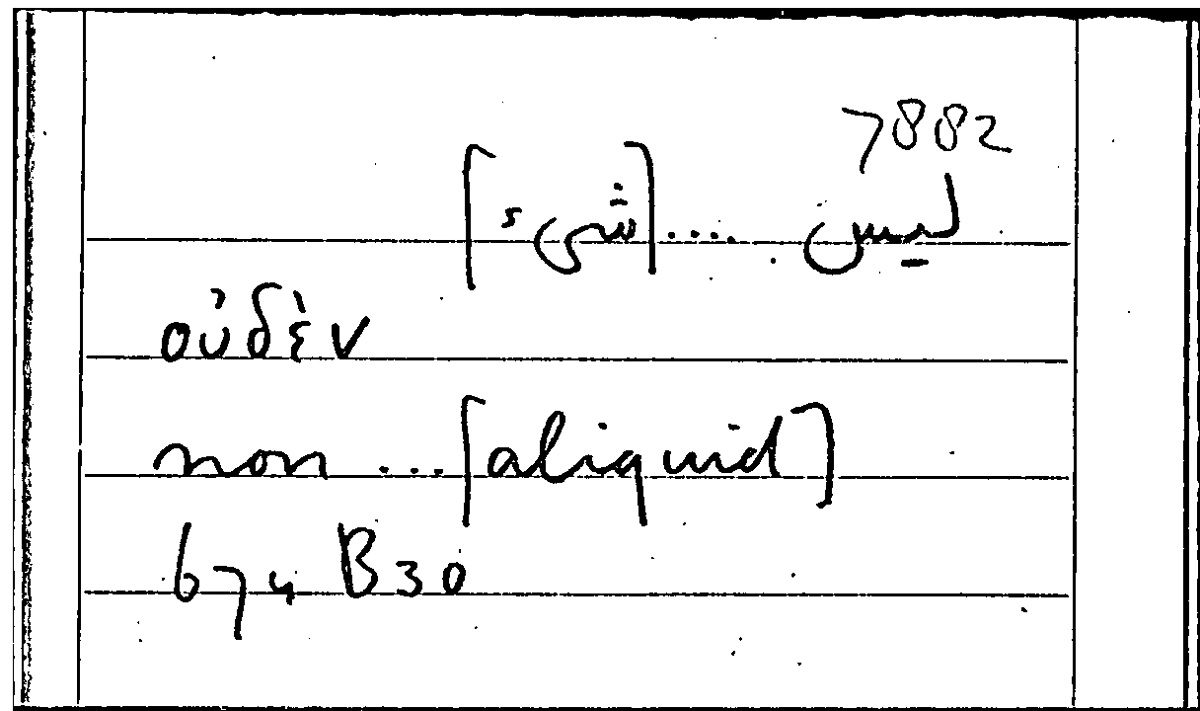 7882
ليس .... [شىء]
οὐδὲν
non ... [aliquid]
674 B30